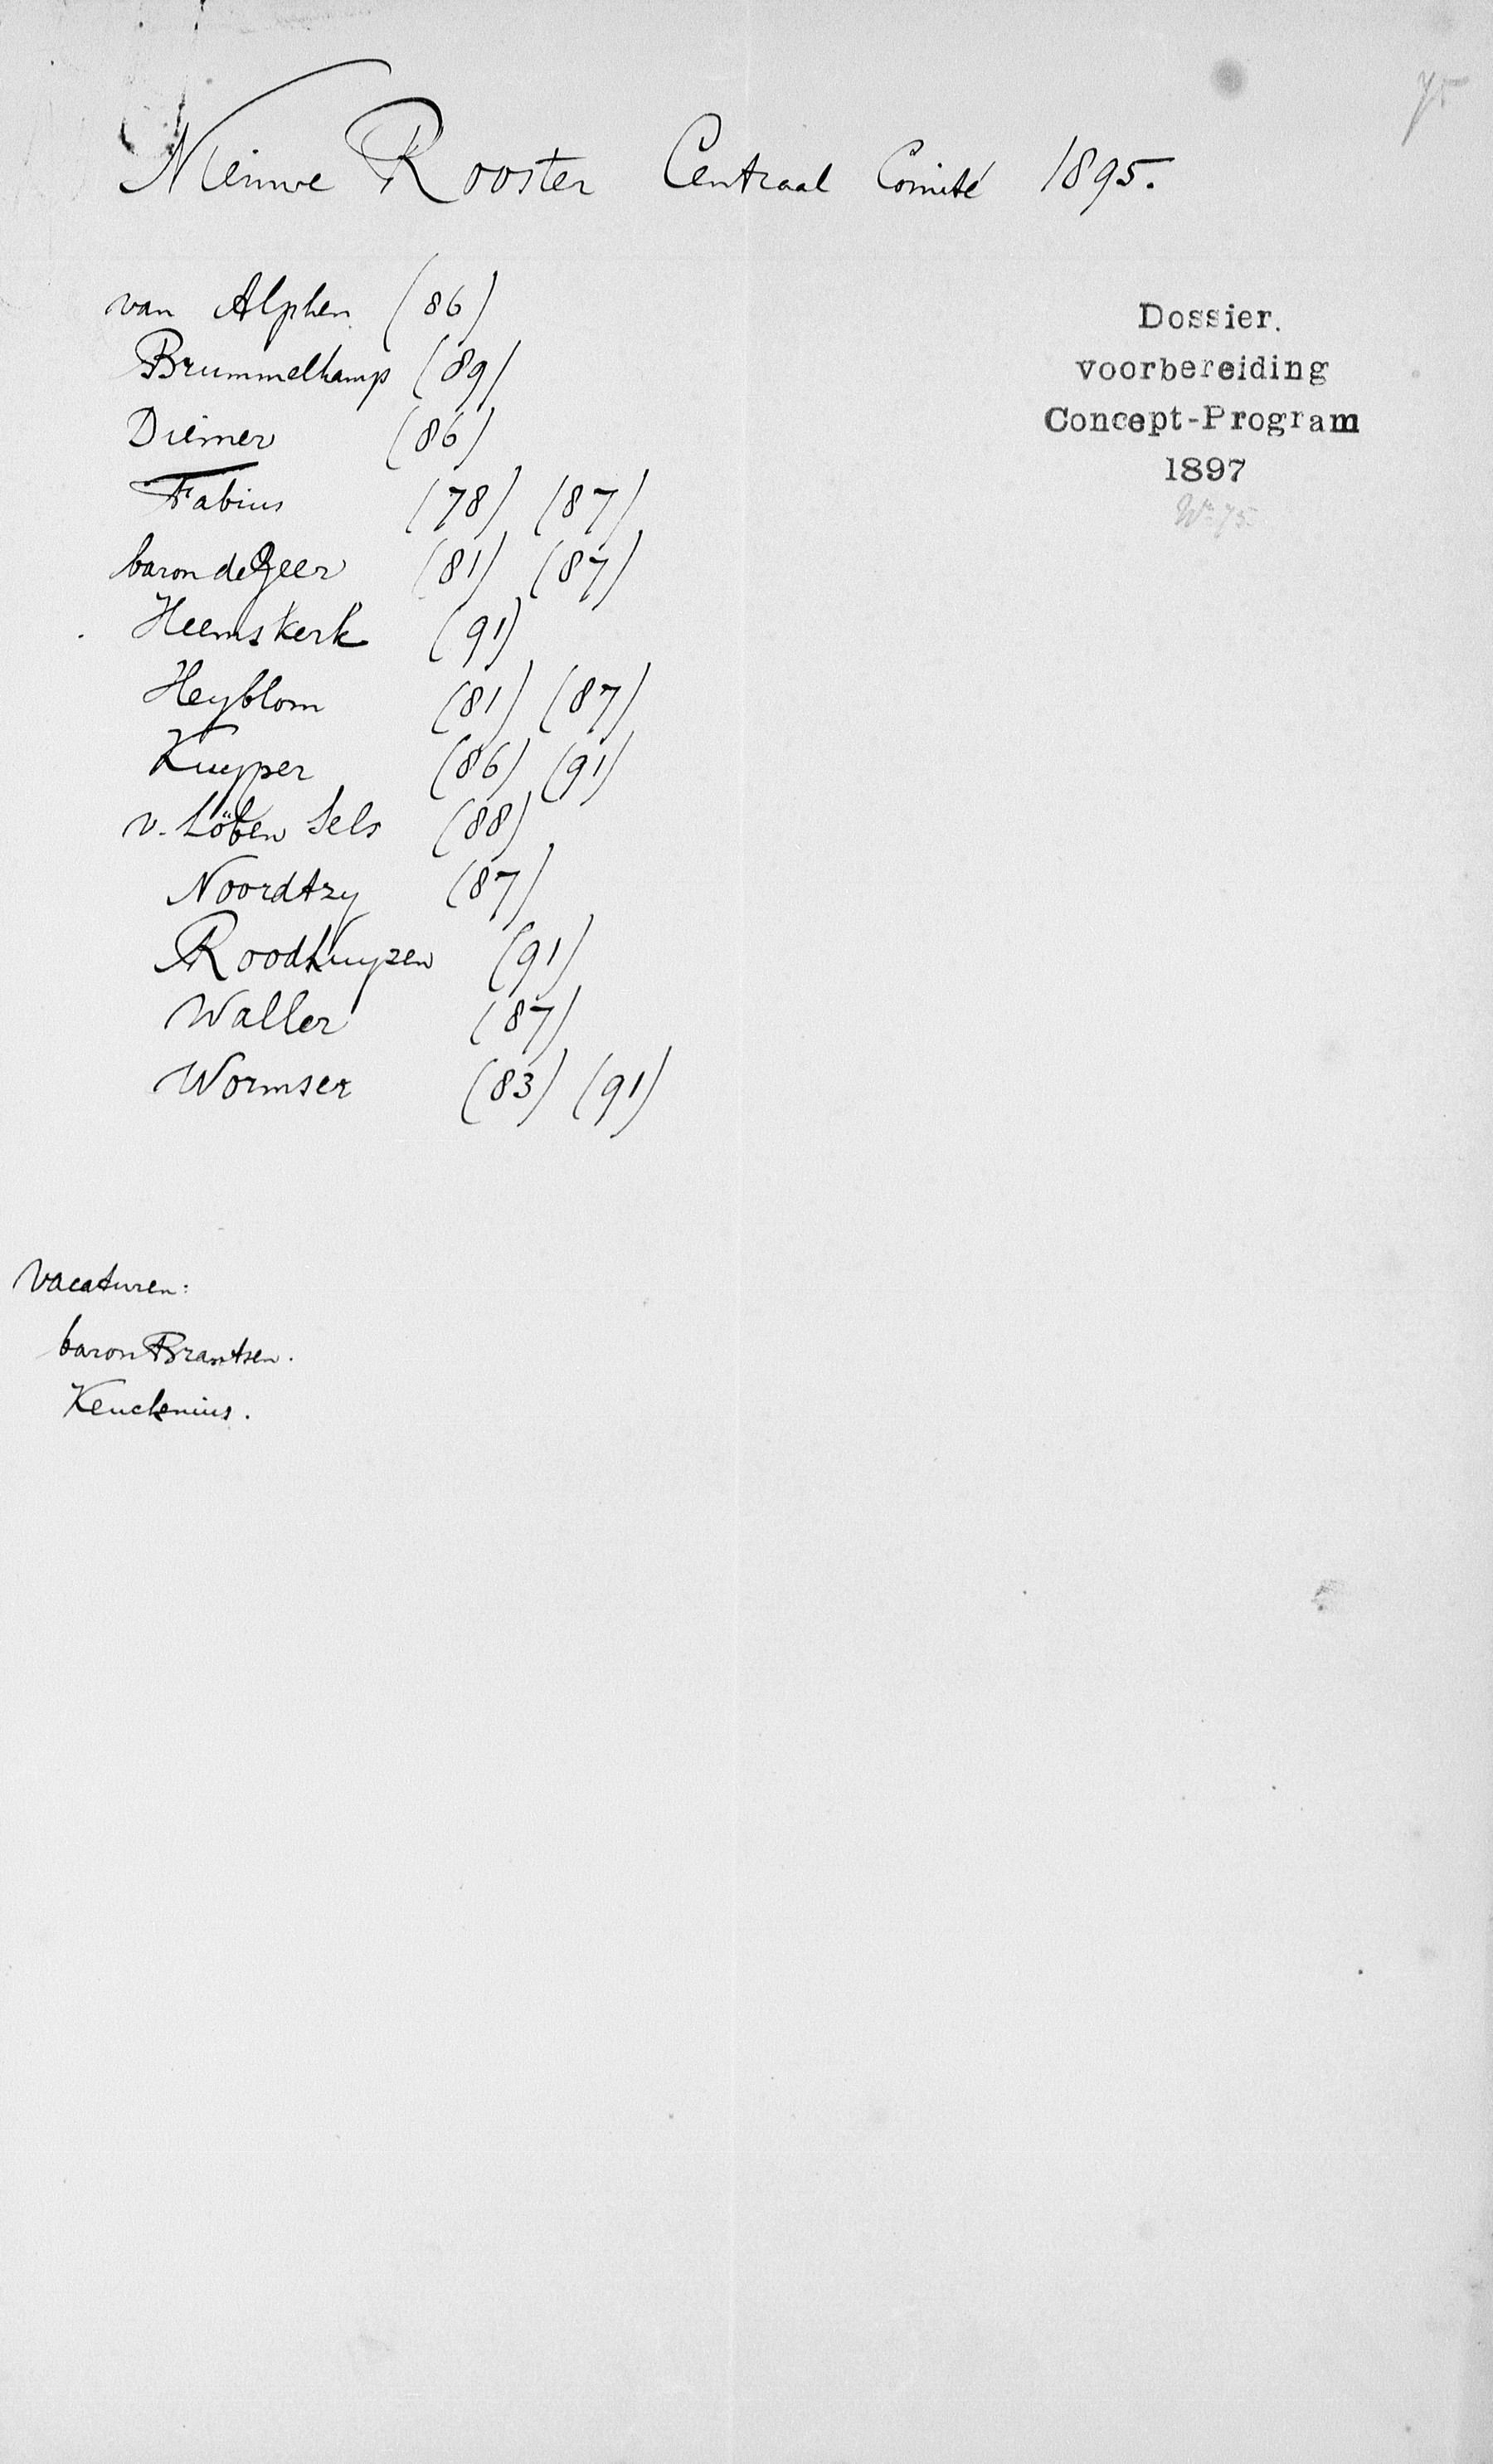 75
Nieuwe Rooster Centraal Comité 1895.
van Alphen (86)
Brummelkamp (89)
Diemer (86)
Fabius (78) (87)
baron de Geer (81) (87)
Heemskerk (91)
Heyblom (81) (87)
Kuyper (86) (91)
v. Löben Sels (88)
Noordtzy (87)
Roodhuyzen (91)
Waller (87)
Wormser (83) (91)
Dossier.
voorbereiding
Concept-Program
1897
No 75
Vacaturen:
baron Brantsen.
Keuchenius.